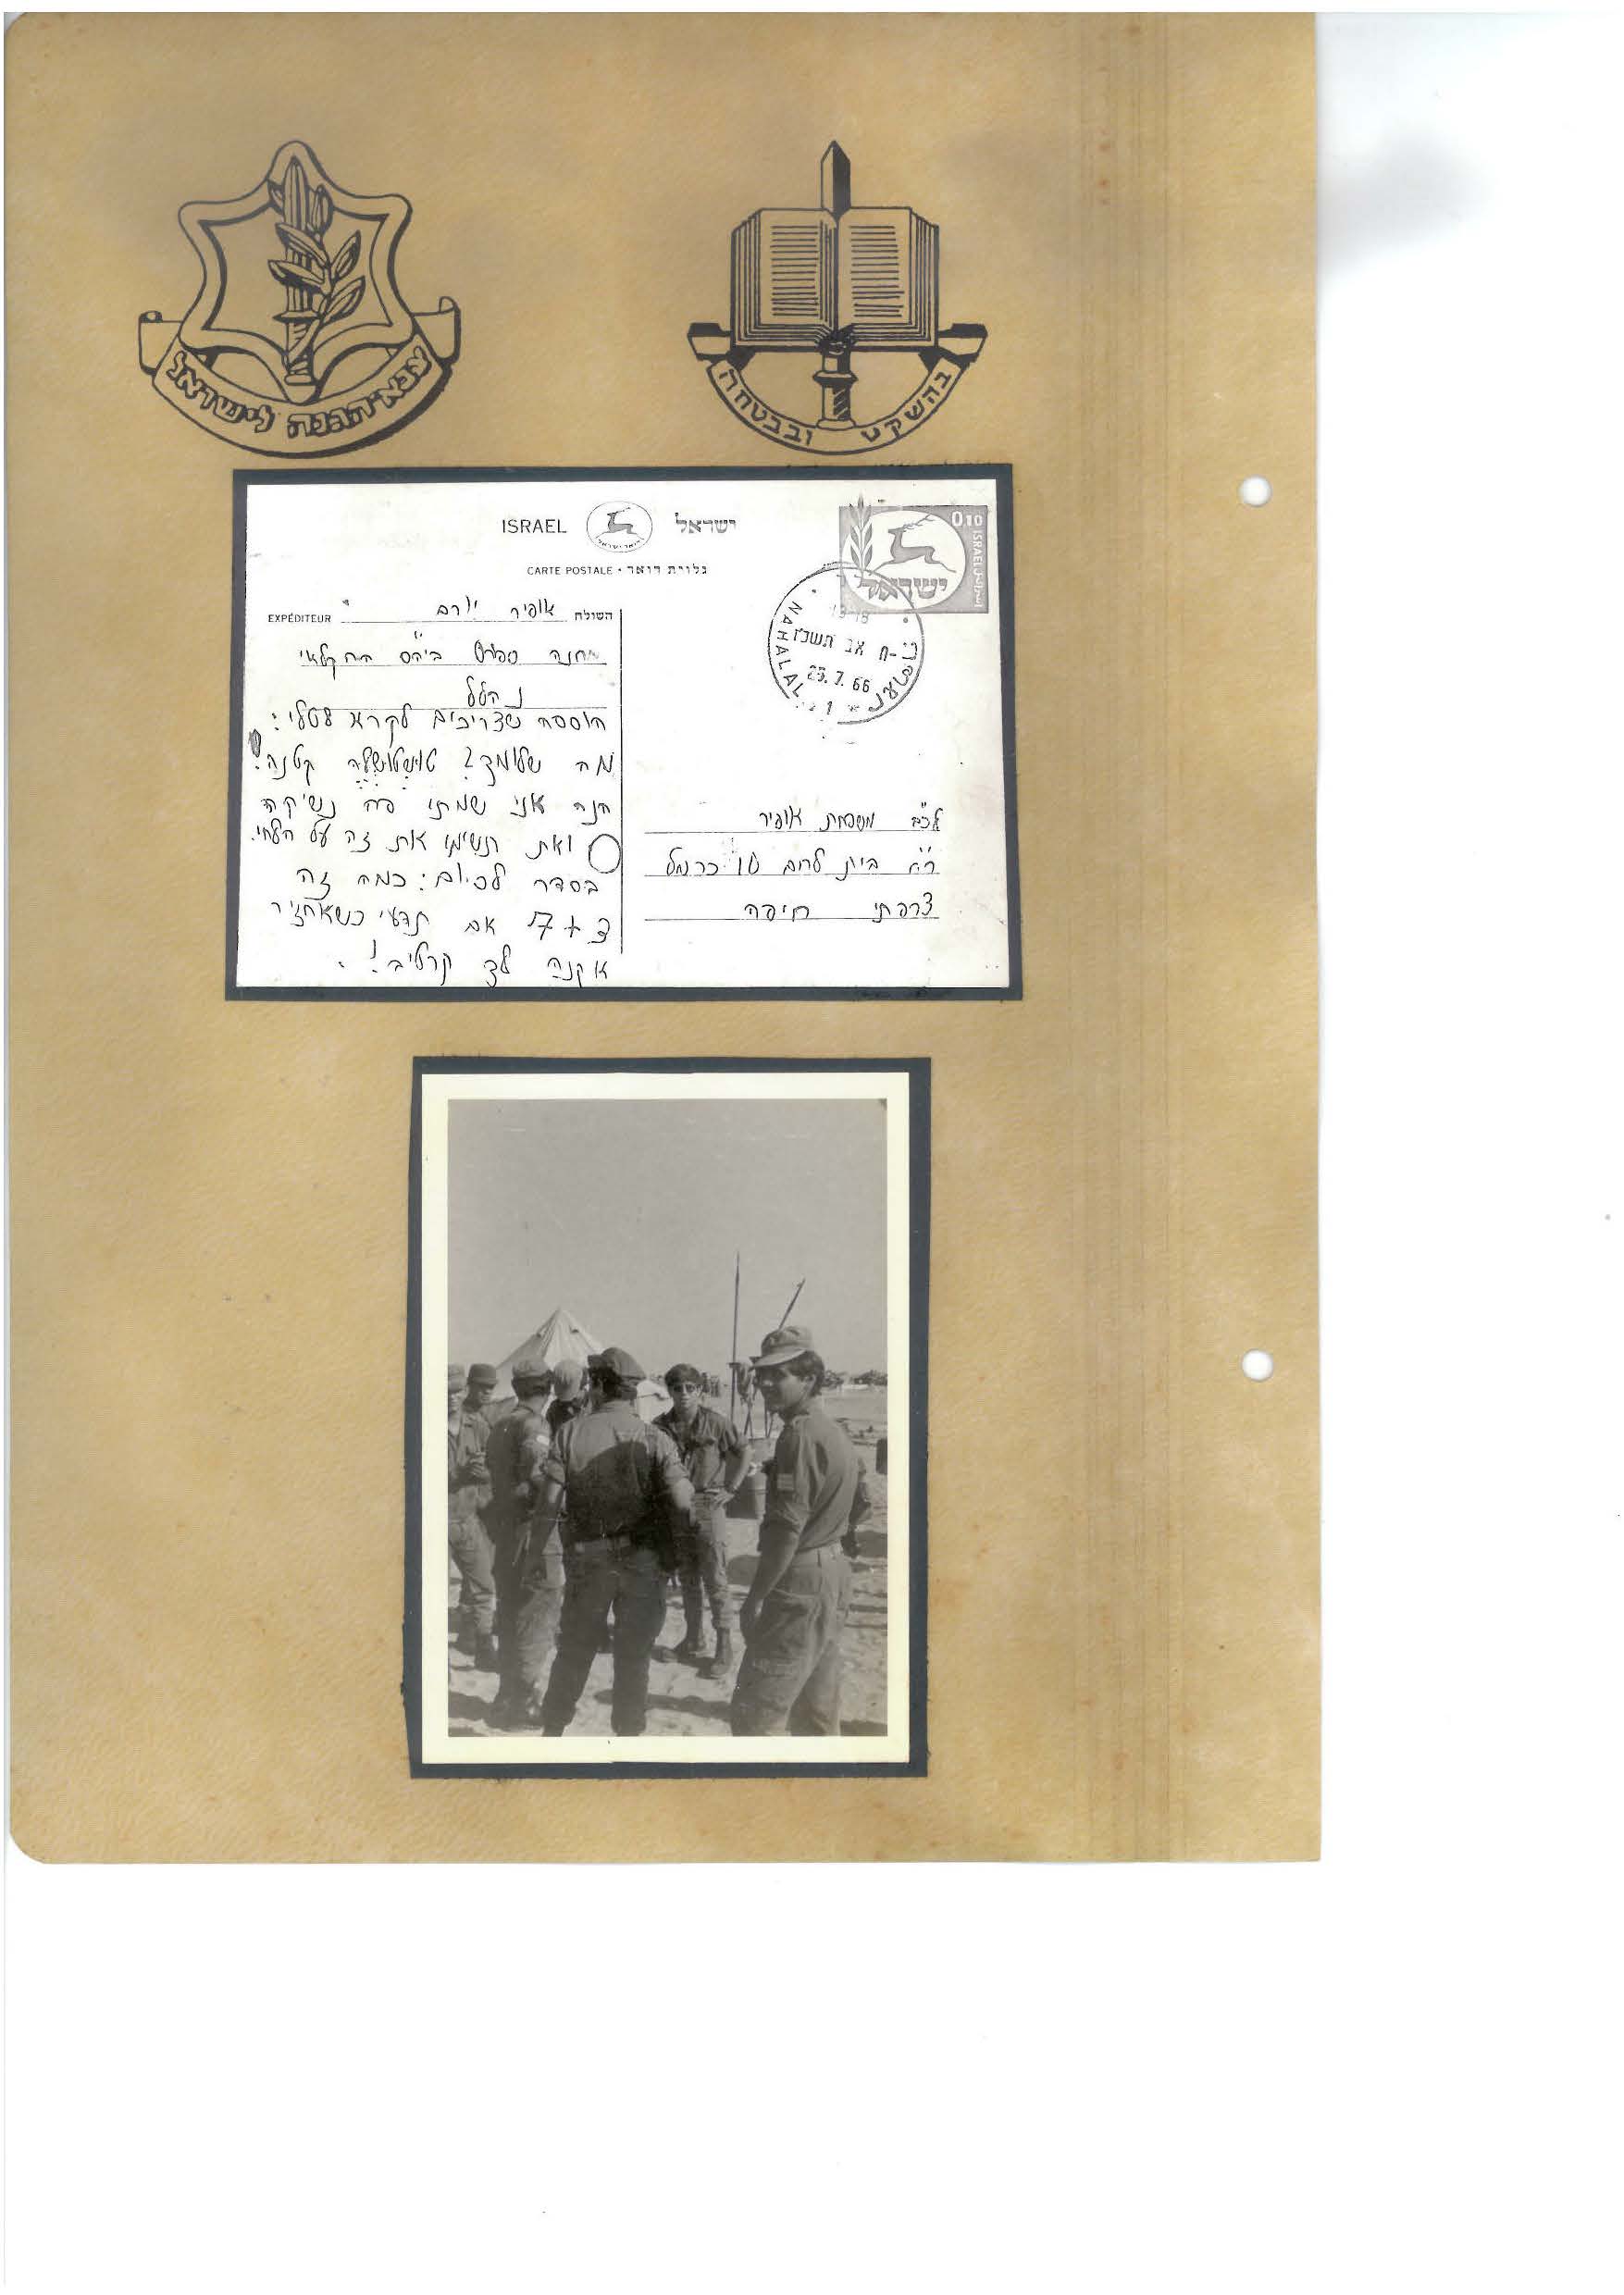 צבא הגנה לישראל
בהשקט ובבטחה
ISRAEL ישראל
CARTE POSTALE • גלוית דואר
0.10 ISRAEL
ישראל
NAHALAL
25.7.66
EXPÉDITEUR השולח אופיר יורם
מחנה ספורט ביה"ס החקלאי
נהלל
הוספה שצריכים לקרא לטלי:
מה שלומך? טושטושלה קטנה!
הנה אני שמתי פה נשיקה
ואת תשימי את זה על הלחי.
בסדר לסיום: כמה זה
3 + 17 אם תדעי כשאחזיר
אקנה לך קרטיב!
לכב' משפחת אופיר
רח' בית לחם 10 כרמל
צרפתי חיפה